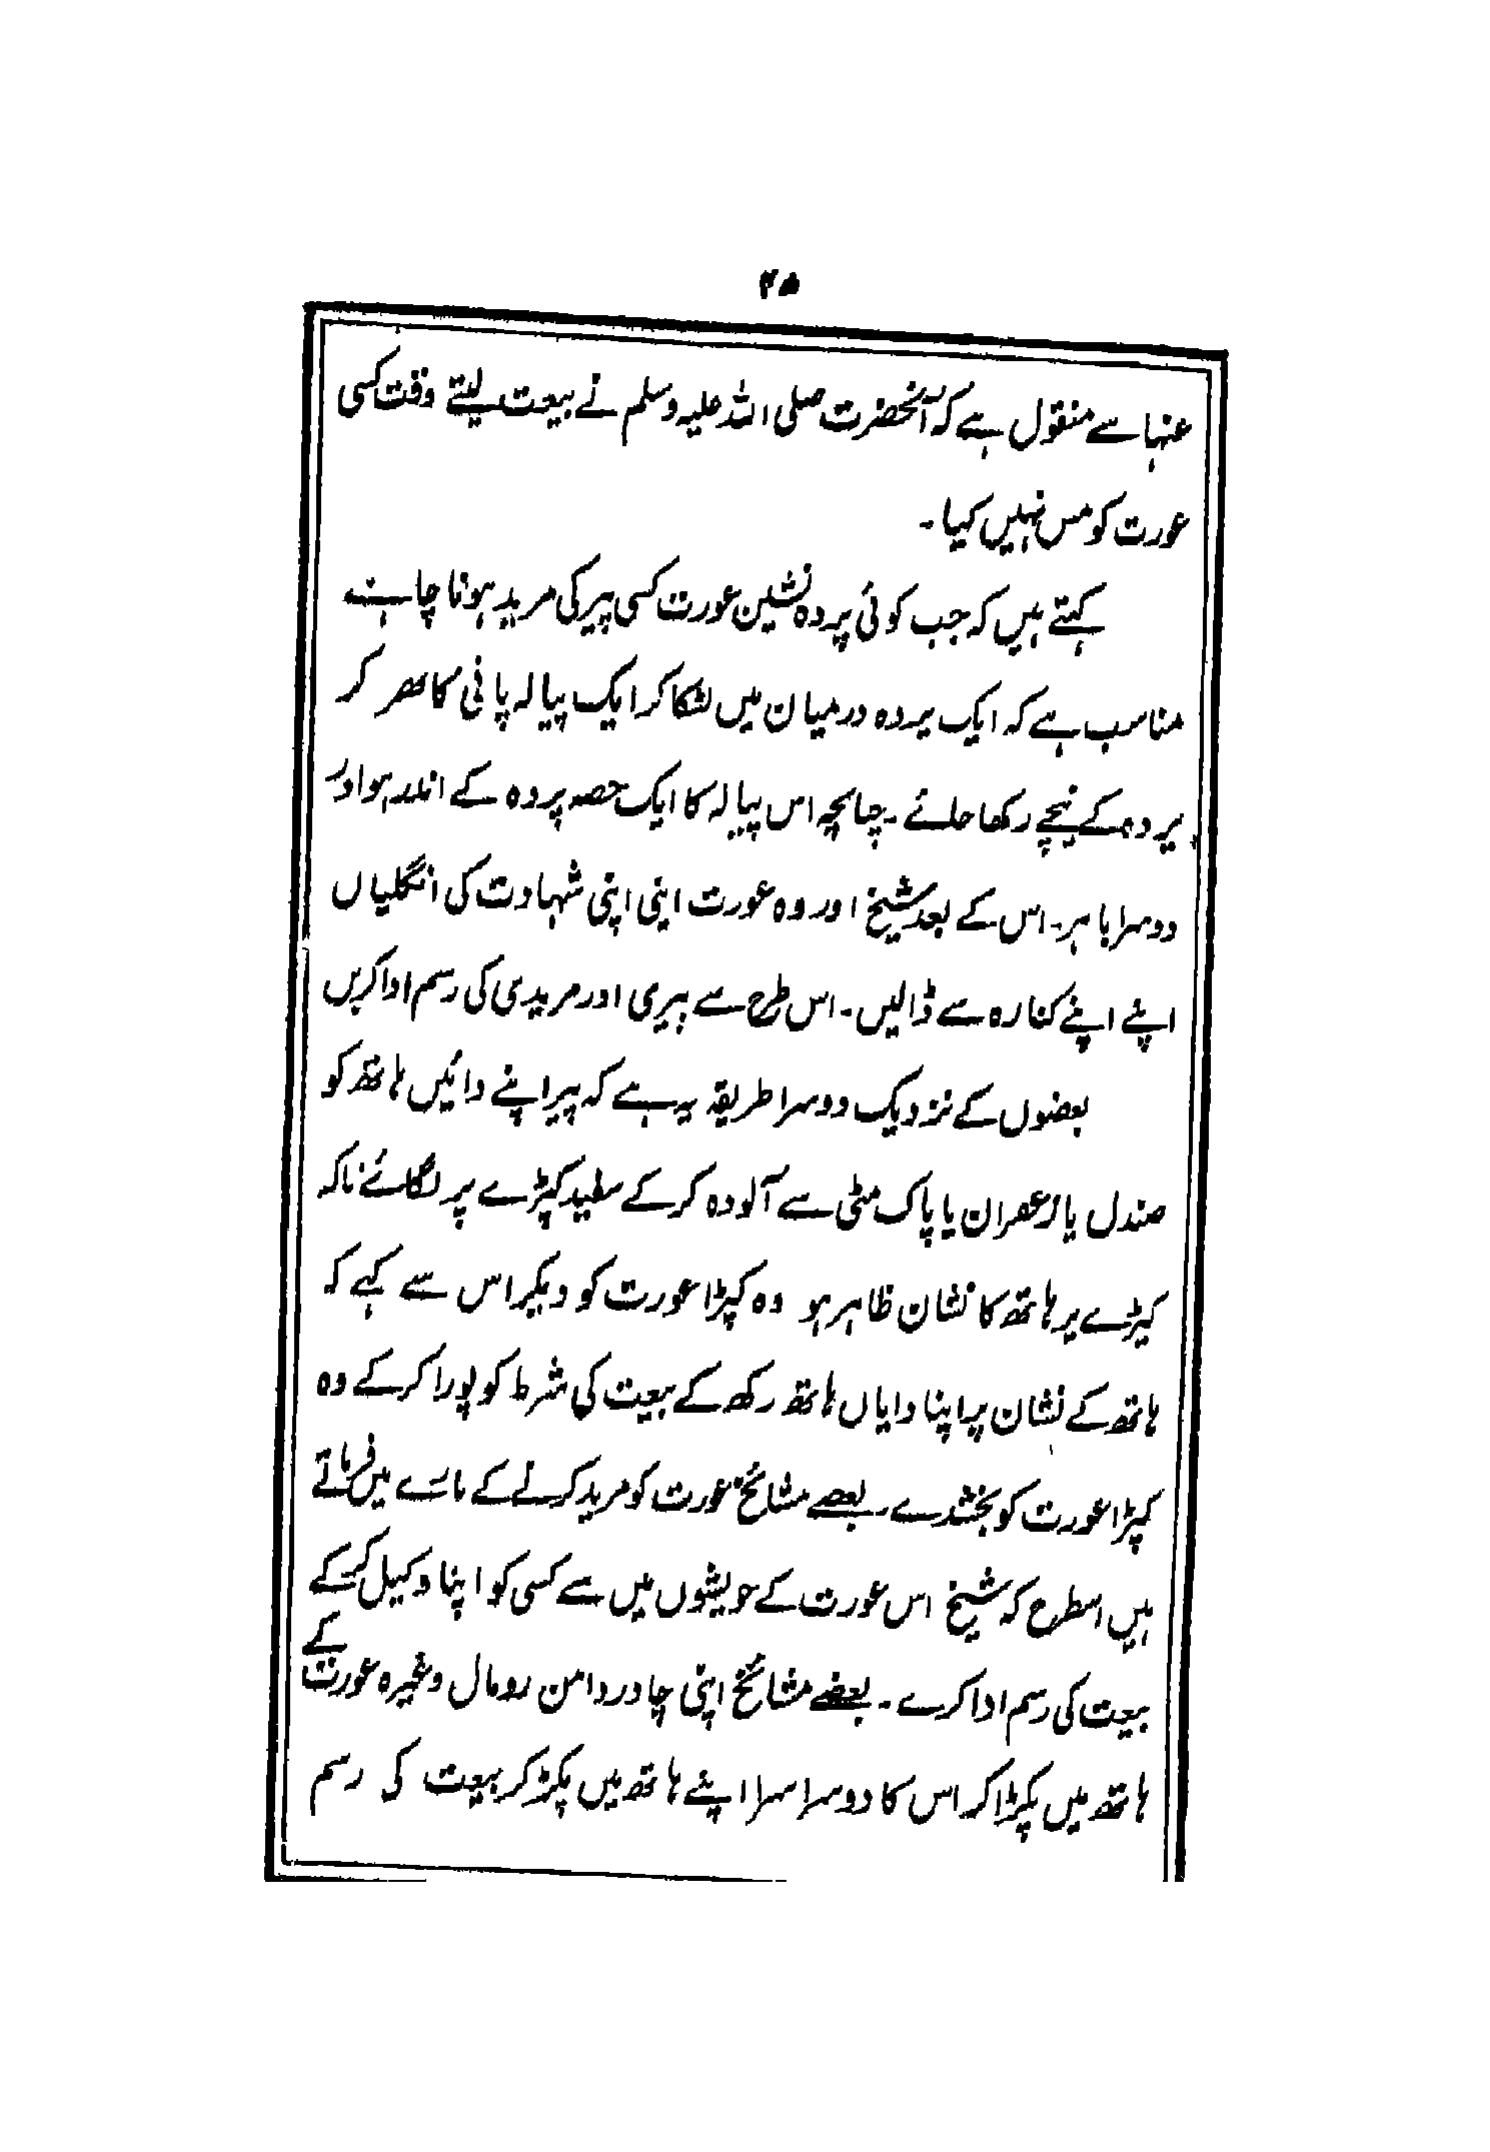 ۲۵
عنہا سے منقول ہے کہ آنحضرت صلی اللہ علیہ وسلم نے بیعت لیتے وقت کسی
عورت کو مس نہیں کیا ۔
کہتے ہیں کہ جب کوئی پردہ نشین عورت کسی پیر کی مرید ہونا چاہے
مناسب ہے کہ ایک پردہ درمیان میں لٹکا کر ایک پیالہ پانی کا بھر کر
پردہ کے نیچے رکھا جائے ۔ چنانچہ اس پیالہ کا ایک حصہ پردہ کے اندر ہو اور
دوسرا باہر ۔ اس کے بعد شیخ اور وہ عورت اپنی اپنی شہادت کی انگلیاں
اپنے اپنے کنارہ سے ڈالیں ۔ اس طرح سے پیری اور مریدی کی رسم ادا کریں
بعضوں کے نزدیک دوسرا طریقہ یہ ہے کہ پیر اپنے دائیں ہاتھ کو
صندل یا زعفران یا پاک مٹی سے آلودہ کر کے سفید کپڑے پر لگائے تاکہ
کپڑے پر ہاتھ کا نشان ظاہر ہو وہ کپڑا عورت کو دیکر اس سے کہے کہ
ہاتھ کے نشان پر اپنا دایاں ہاتھ رکھ کے بیعت کی شرط کو پورا کر کے وہ
کپڑا عورت کو بخشدے ۔ بعضے مشائخ عورت کو مرید کرنے کے بارے میں فرماتے
ہیں اسطرح کہ شیخ اس عورت کے خویشوں میں سے کسی کو اپنا وکیل کر کے
بیعت کی رسم ادا کرے ۔ بعضے مشائخ اپنی چادر دامن رومال وغیرہ عورت کے
ہاتھ میں پکڑا کر اس کا دوسرا سرا اپنے ہاتھ میں پکڑ کر بیعت کی رسم